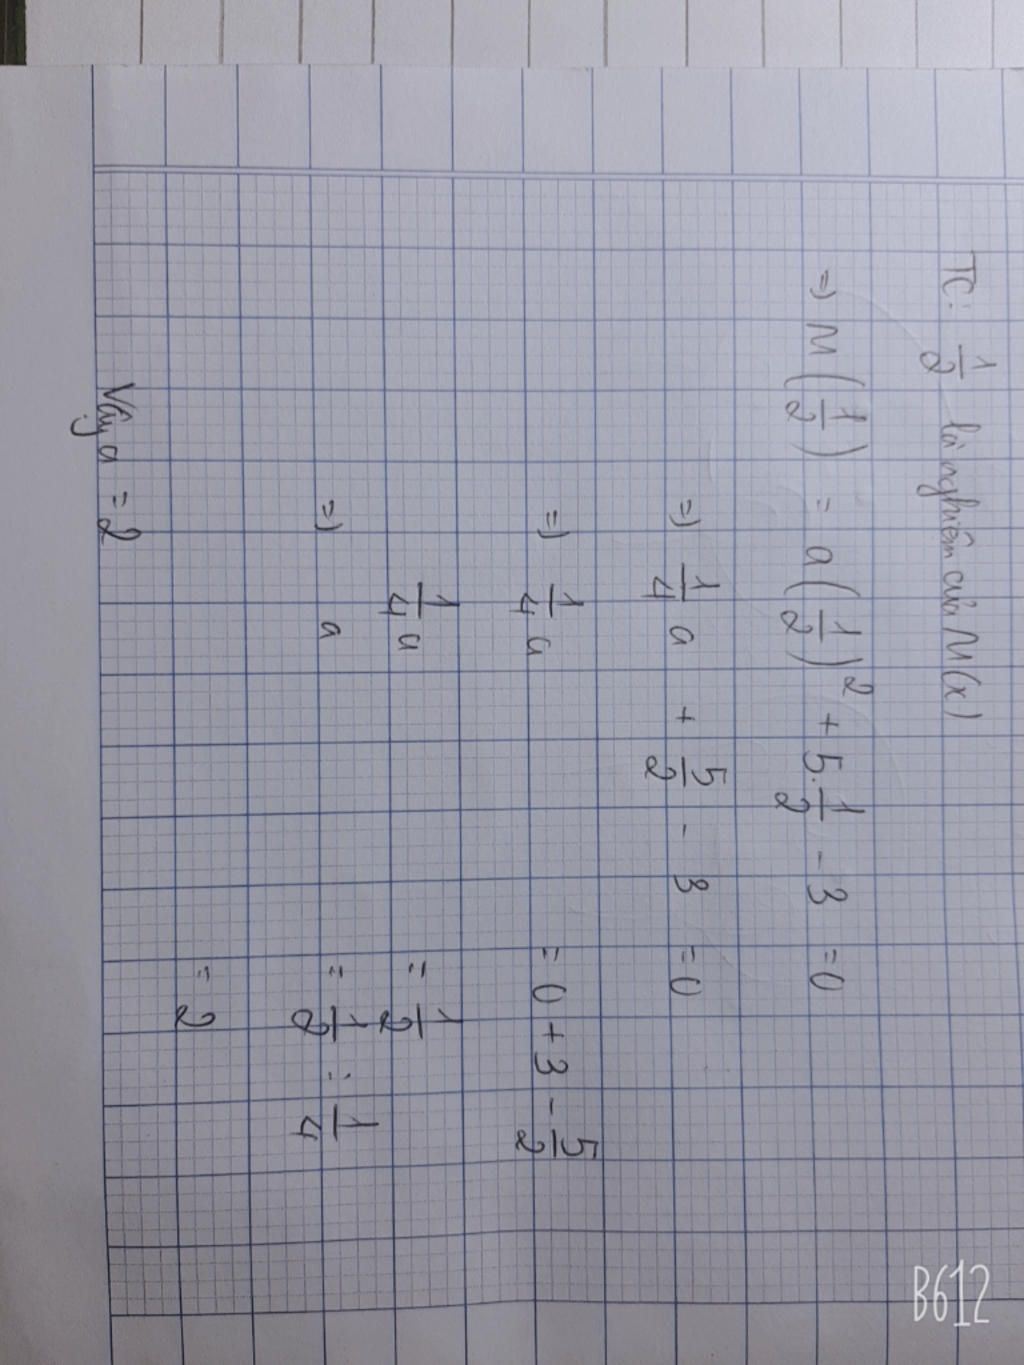 TC: 1/2 là nghiệm của M(x)
=) M(1/2) = a(1/2)² + 5.1/2 - 3 = 0
=) 1/4 a + 5/2 - 3 = 0
=) 1/4 a = 0 + 3 - 5/2
1/4 a = 1/2
=) a = 1/2 : 1/4
= 2
Vậy a = 2
B612